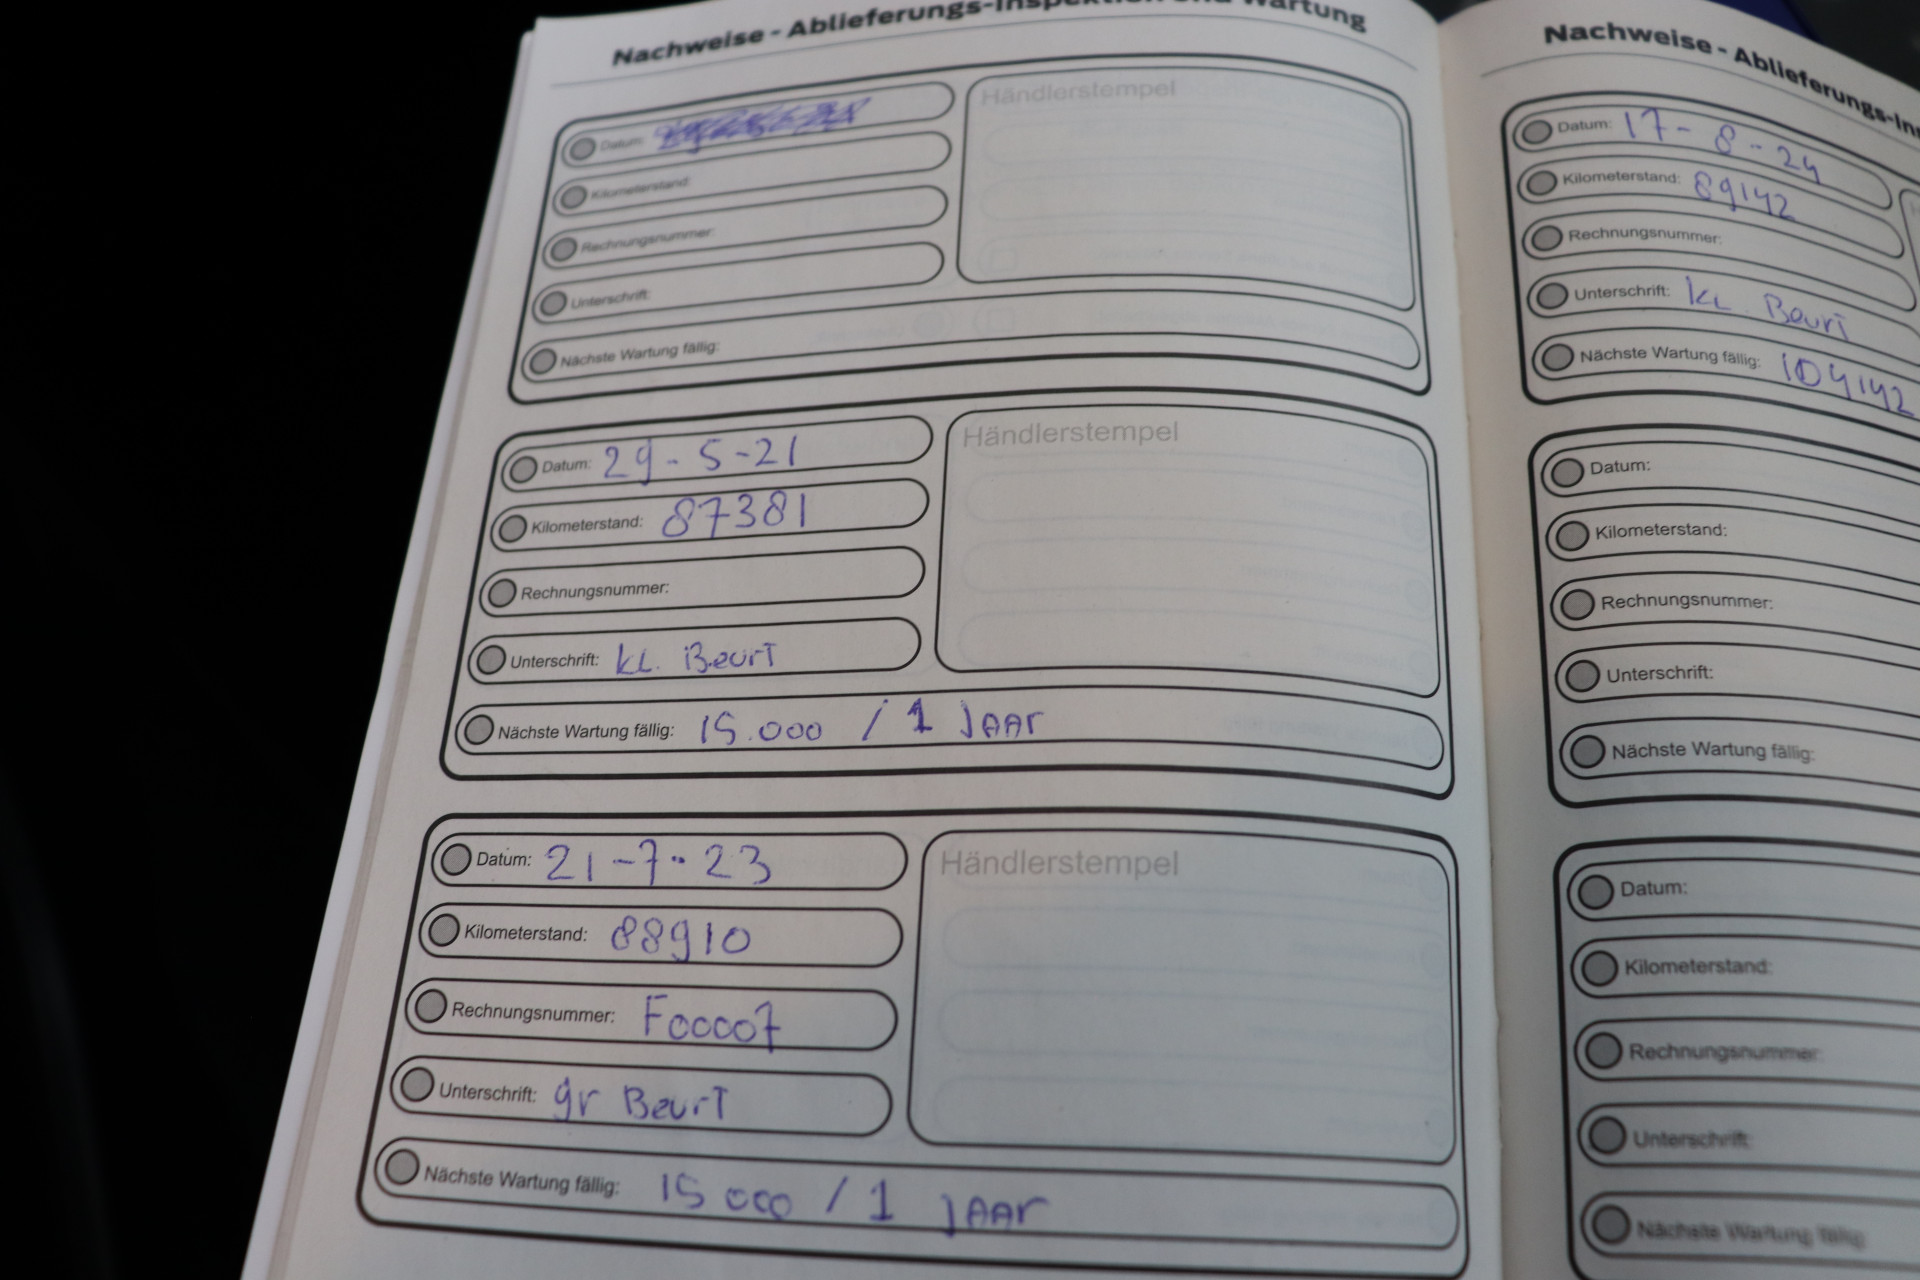 Nachweise - Ablieferungs-Inspektion und Wartung
Datum:
Kilometerstand:
Rechnungsnummer:
Unterschrift:
Nächste Wartung fällig:
Händlerstempel
Datum: 29-5-21
Kilometerstand: 87381
Rechnungsnummer:
Unterschrift: kL. Beurt
Nächste Wartung fällig: 15.000 / 1 JAAr
Händlerstempel
Datum: 21-7-23
Kilometerstand: 88910
Rechnungsnummer: F00007
Unterschrift: gr Beurt
Nächste Wartung fällig: 15 000 / 1 jAAr
Händlerstempel
Nachweise - Ablieferungs-In
Datum: 17-8-24
Kilometerstand: 89142
Rechnungsnummer:
Unterschrift: kL. Beurt
Nächste Wartung fällig: 104142
Datum:
Kilometerstand:
Rechnungsnummer:
Unterschrift:
Nächste Wartung fällig:
Datum:
Kilometerstand:
Rechnungsnummer:
Unterschrift:
Nächste Wartung fällig: